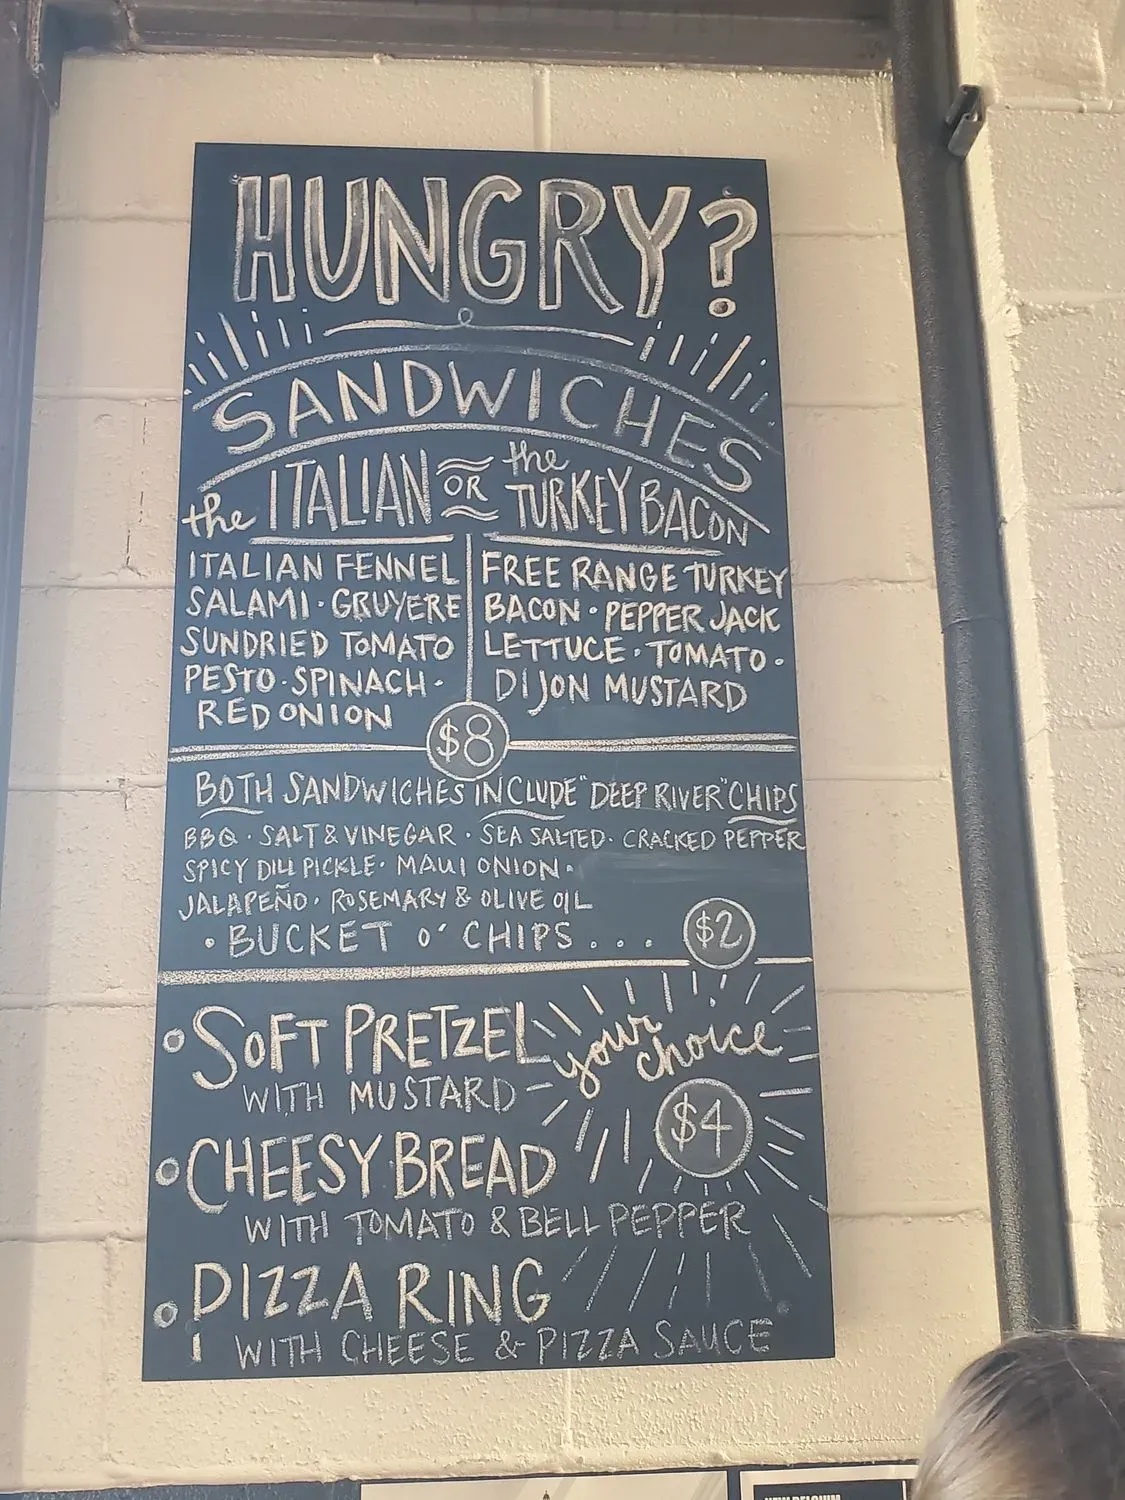 HUNGRY?
SANDWICHES
the ITALIAN OR the TURKEY BACON
ITALIAN FENNEL
SALAMI · GRUYERE
SUNDRIED TOMATO
PESTO · SPINACH ·
RED ONION
FREE RANGE TURKEY
BACON · PEPPER JACK
LETTUCE · TOMATO ·
DIJON MUSTARD
$8
BOTH SANDWICHES INCLUDE "DEEP RIVER" CHIPS
BBQ · SALT & VINEGAR · SEA SALTED · CRACKED PEPPER
SPICY DILL PICKLE · MAUI ONION ·
JALAPEÑO · ROSEMARY & OLIVE OIL
· BUCKET O' CHIPS . . . $2
· SOFT PRETZEL
WITH MUSTARD
your choice
$4
· CHEESY BREAD
WITH TOMATO & BELL PEPPER
· PIZZA RING
WITH CHEESE & PIZZA SAUCE
NEW BELGIUM